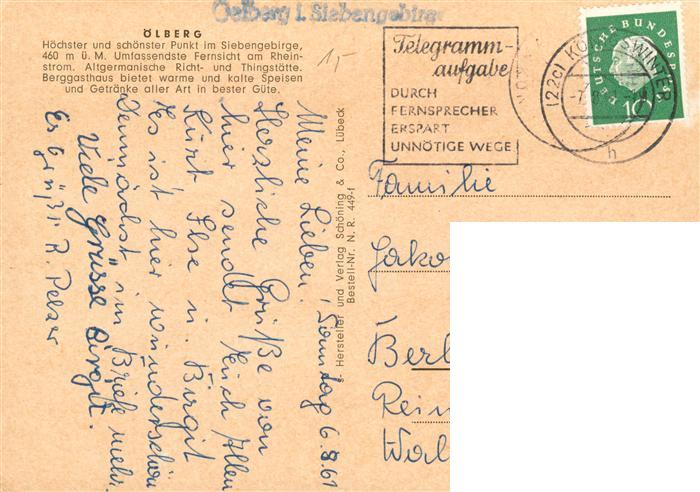 Oelberg i. Siebengebirge
ÖLBERG
Höchster und schönster Punkt im Siebengebirge,
460 m ü. M. Umfassendste Fernsicht am Rhein-
strom. Altgermanische Richt- und Thingstätte.
Berggasthaus bietet warme und kalte Speisen
und Getränke aller Art in bester Güte.
15
Meine Lieben! Sonntag 6.8.61
Herzliche Grüße von
hier sendet Euch Allen
Kurt Else u. Birgit
Es ist hier wunderschön
Demnächst im Briefe mehr.
Viele Grüsse Birgit.
Es grüßt R. Pelzer
Hersteller und Verlag Schöning & Co., Lübeck
Bestell-Nr. N. R. 449-1
Telegramm-
aufgabe
DURCH
FERNSPRECHER
ERSPART
UNNÖTIGE WEGE
(22c) KÖNIGSWINTER
h
DEUTSCHE BUNDESPOST
10
Familie
Jako
Berl
Rein
Wal